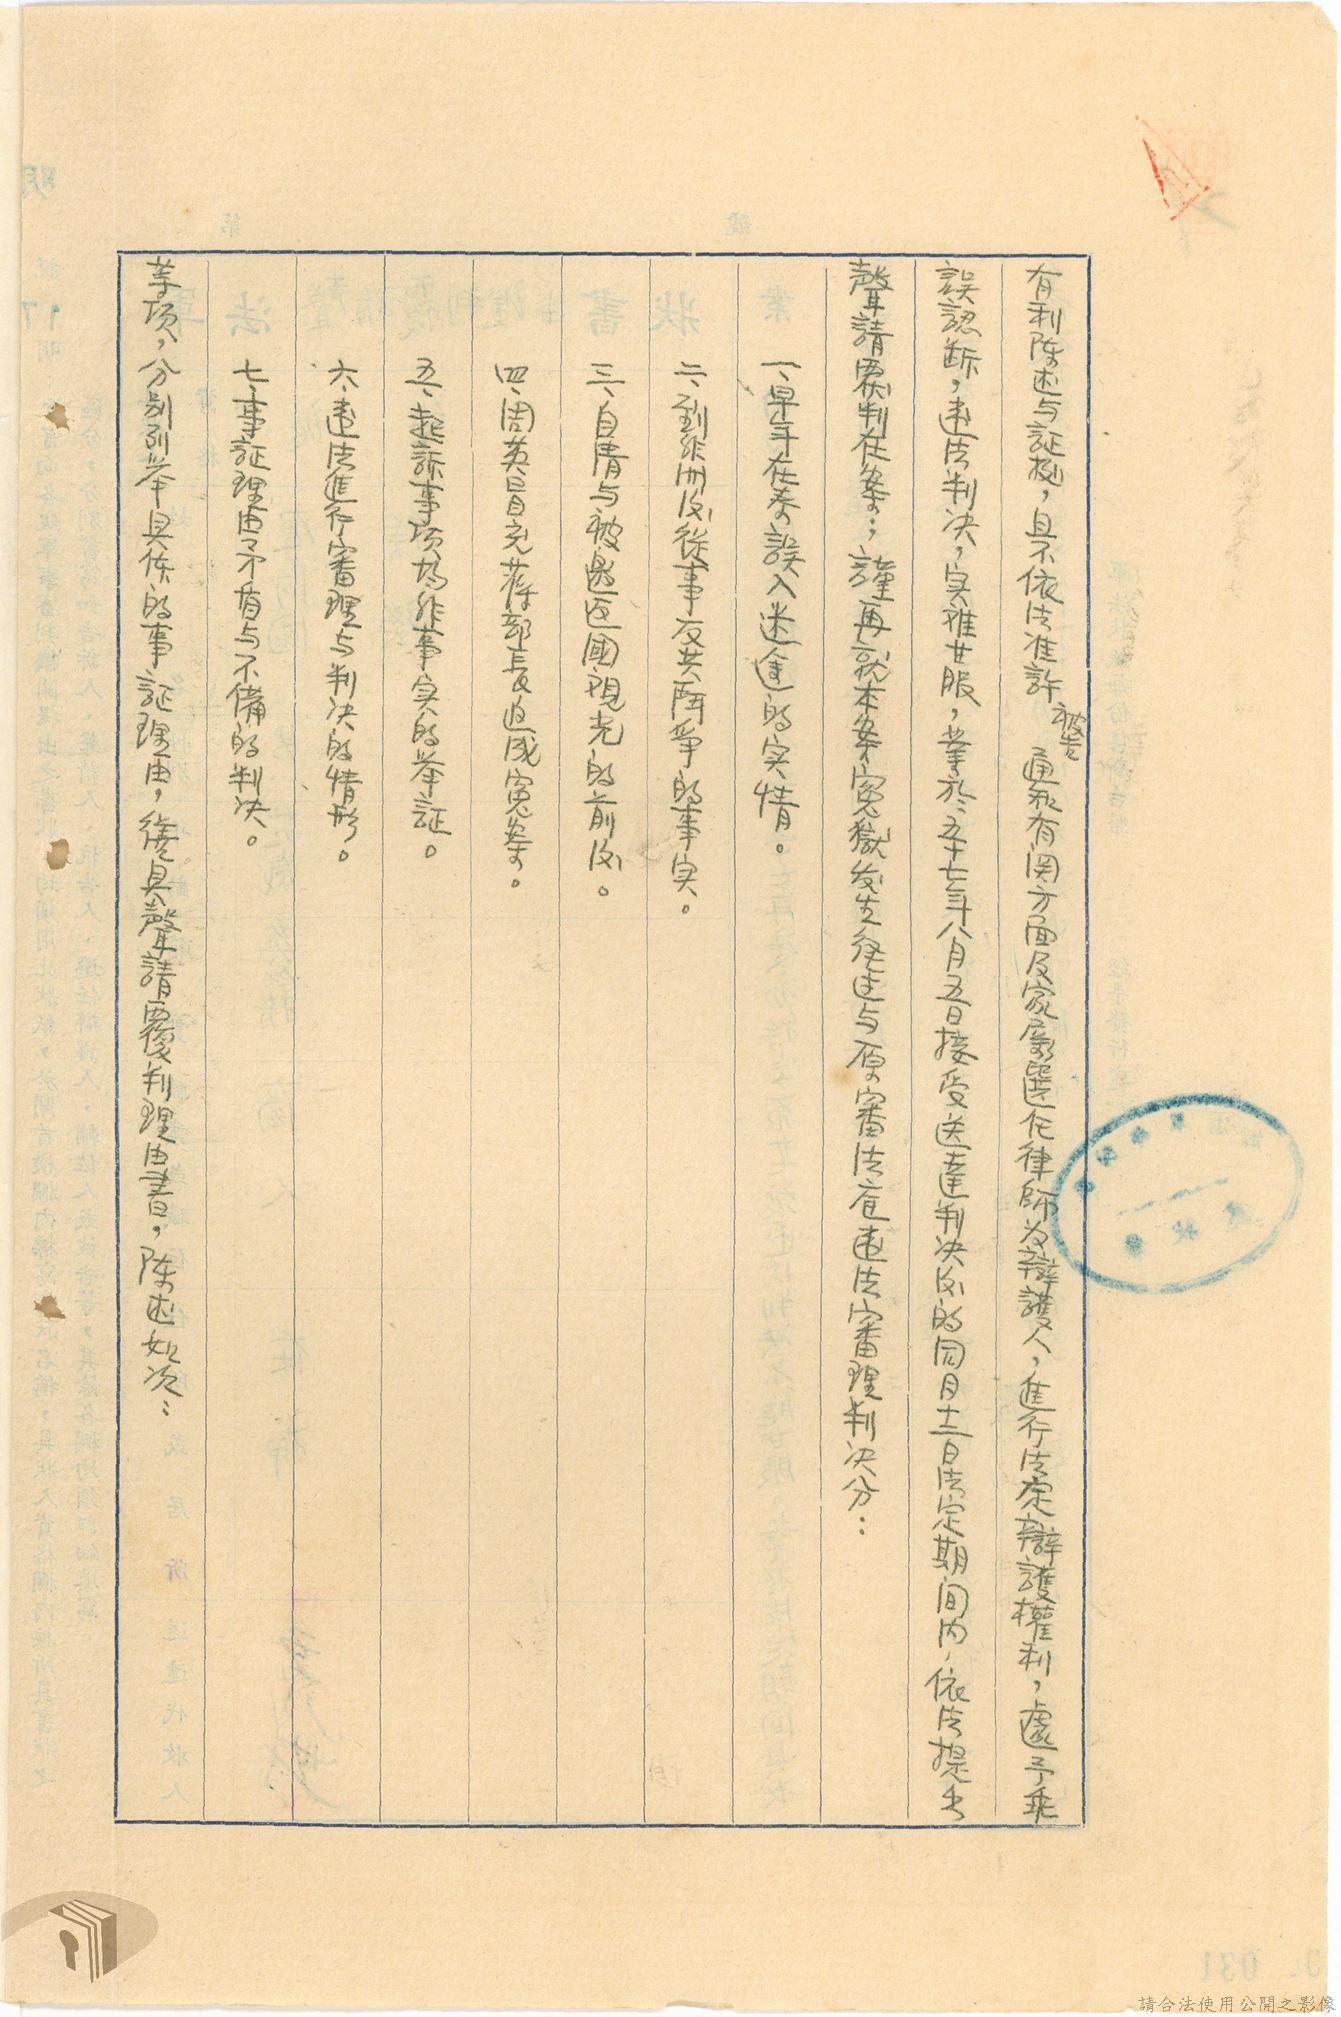 有利陈述与証据，且不依法准許被告通知有関方面及家屬選任律師为辯護人，進行法定辯護权利，處予乖
誤認断，違法判决，实难甘服，業於五十七年八月五日接受送達判决后的同月十三日法定期间内，依法提出
聲請覆判在案；謹再就本案寃獄发生经过与原審法庭違法審理判决分：
一、早年在泰誤入迷途的实情。
二、到非洲后從事反共鬥爭的事实。
三、自清与被邀返國观光的前后。
四、周英冒充蔣部長造成寃案。
五、起訴事項均非事实的举証。
六、違法進行審理与判决的情形。
七、事証理由予不首与不備的判决。
等項，分别列举具体的事証理由，繕具聲請覆判理由書，陈述如次：
請合法使用公開之影像